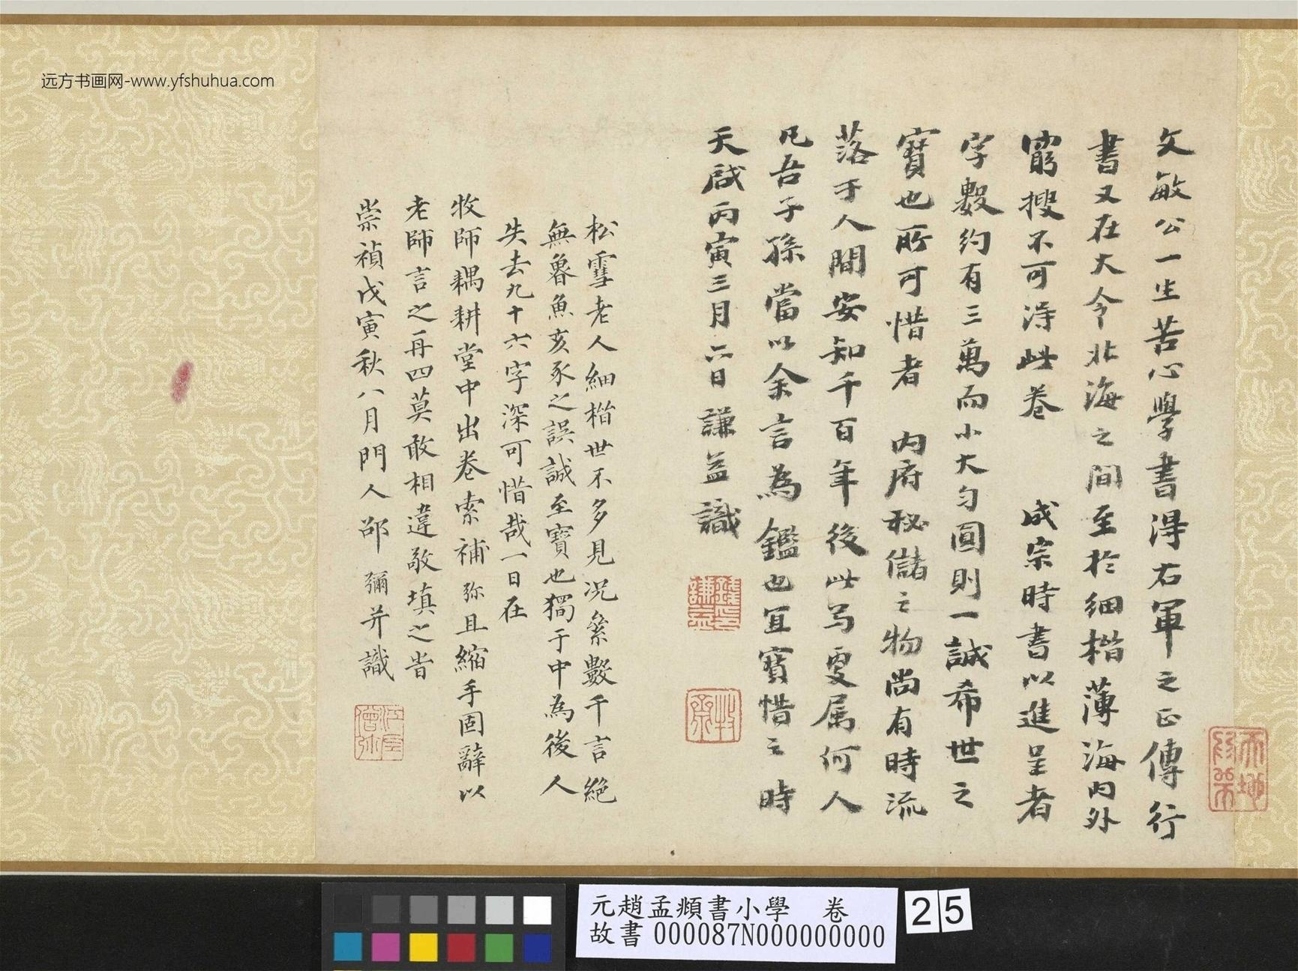 文敏公一生苦心學書得右軍之正傳行
書又在大令北海之間至於細楷薄海內外
窮搜不可得此卷 成宗時書以進呈者
字數約有三萬而小大勻圓則一誠希世之
寶也所可惜者 內府秘儲之物尚有時流
落于人間安知千百年後此為更属何人
凡吾子孫當以余言為鑑也宜寶惜之時
天啟丙寅三月六日謙益識
松雪老人細楷世不多見況纍數千言絕
無魯魚亥豕之誤誠至寶也獨于中為後人
失去九十六字深可惜哉一日在
牧師耦耕堂中出卷索補弥且縮手固辭以
老師言之再四莫敢相違敬填之旹
崇禎戊寅秋八月門人邵彌并識
远方书画网-www.yfshuhua.com
元趙孟頫書小學 卷
故書 000087N000000000
25